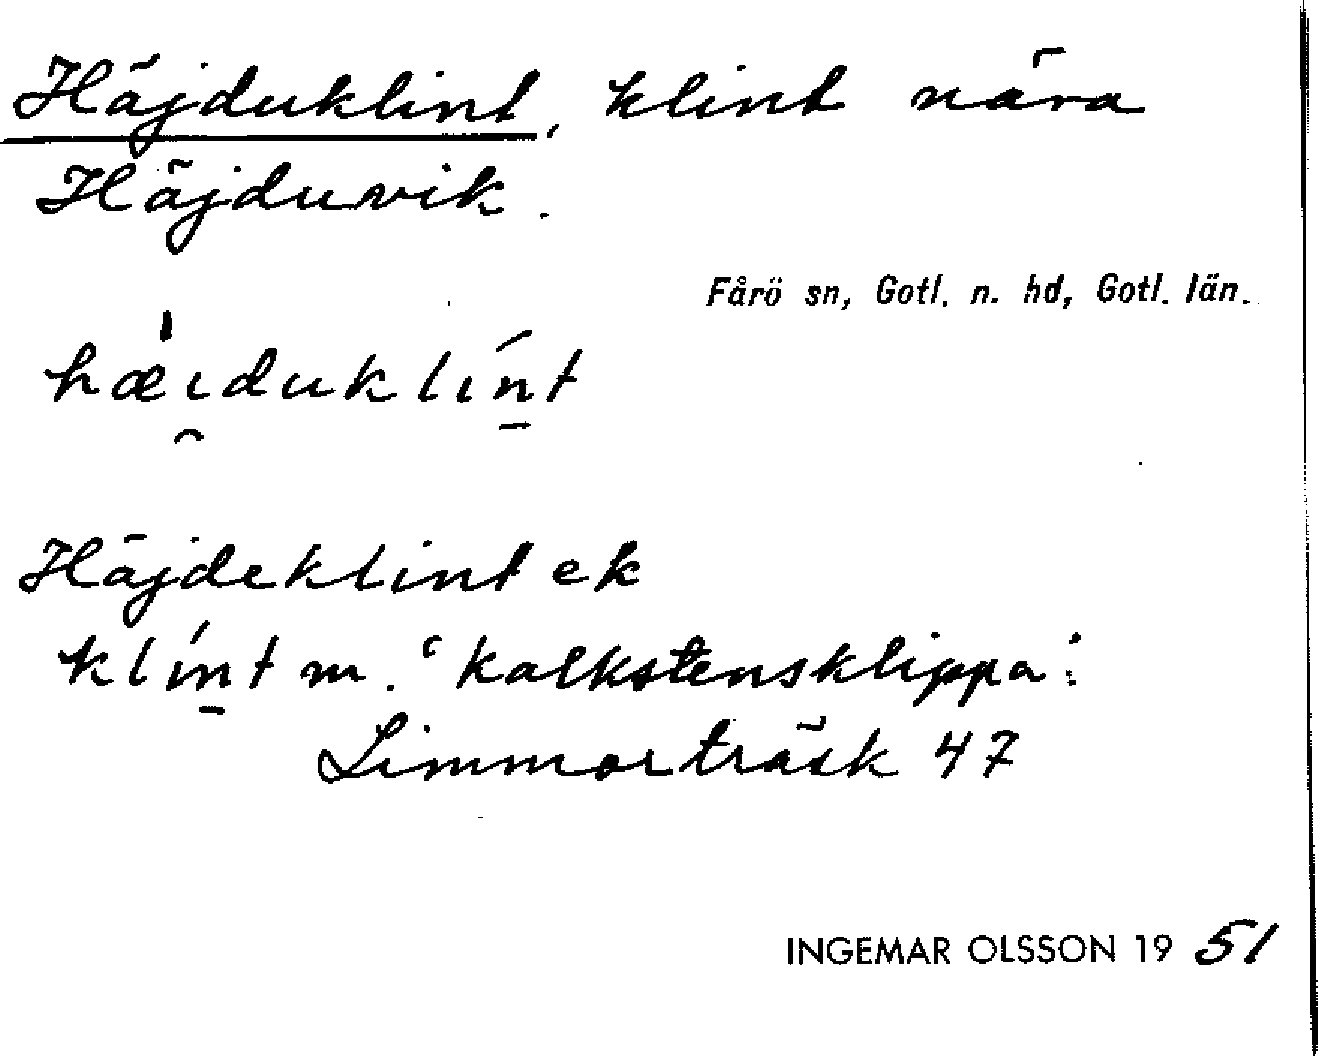 Häjduklint, klint nära
Häjduvik.
Fårö sn, Gotl. n. hd, Gotl. län.
hæ̍ı̯duklín̠t
Häjdeklint ek
klín̠t m. ‘kalkstensklippa’:
Limmorträsk 47
INGEMAR OLSSON 19 51